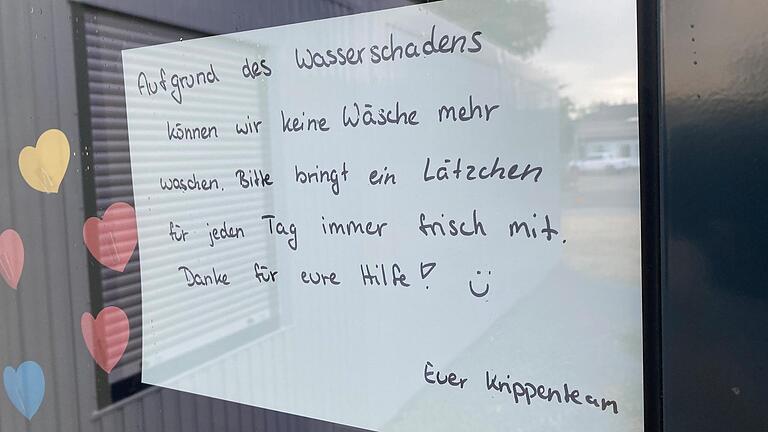 Aufgrund des Wasserschadens
können wir keine Wäsche mehr
waschen. Bitte bringt ein Lätzchen
für jeden Tag immer frisch mit.
Danke für eure Hilfe! Ü
Euer Krippenteam